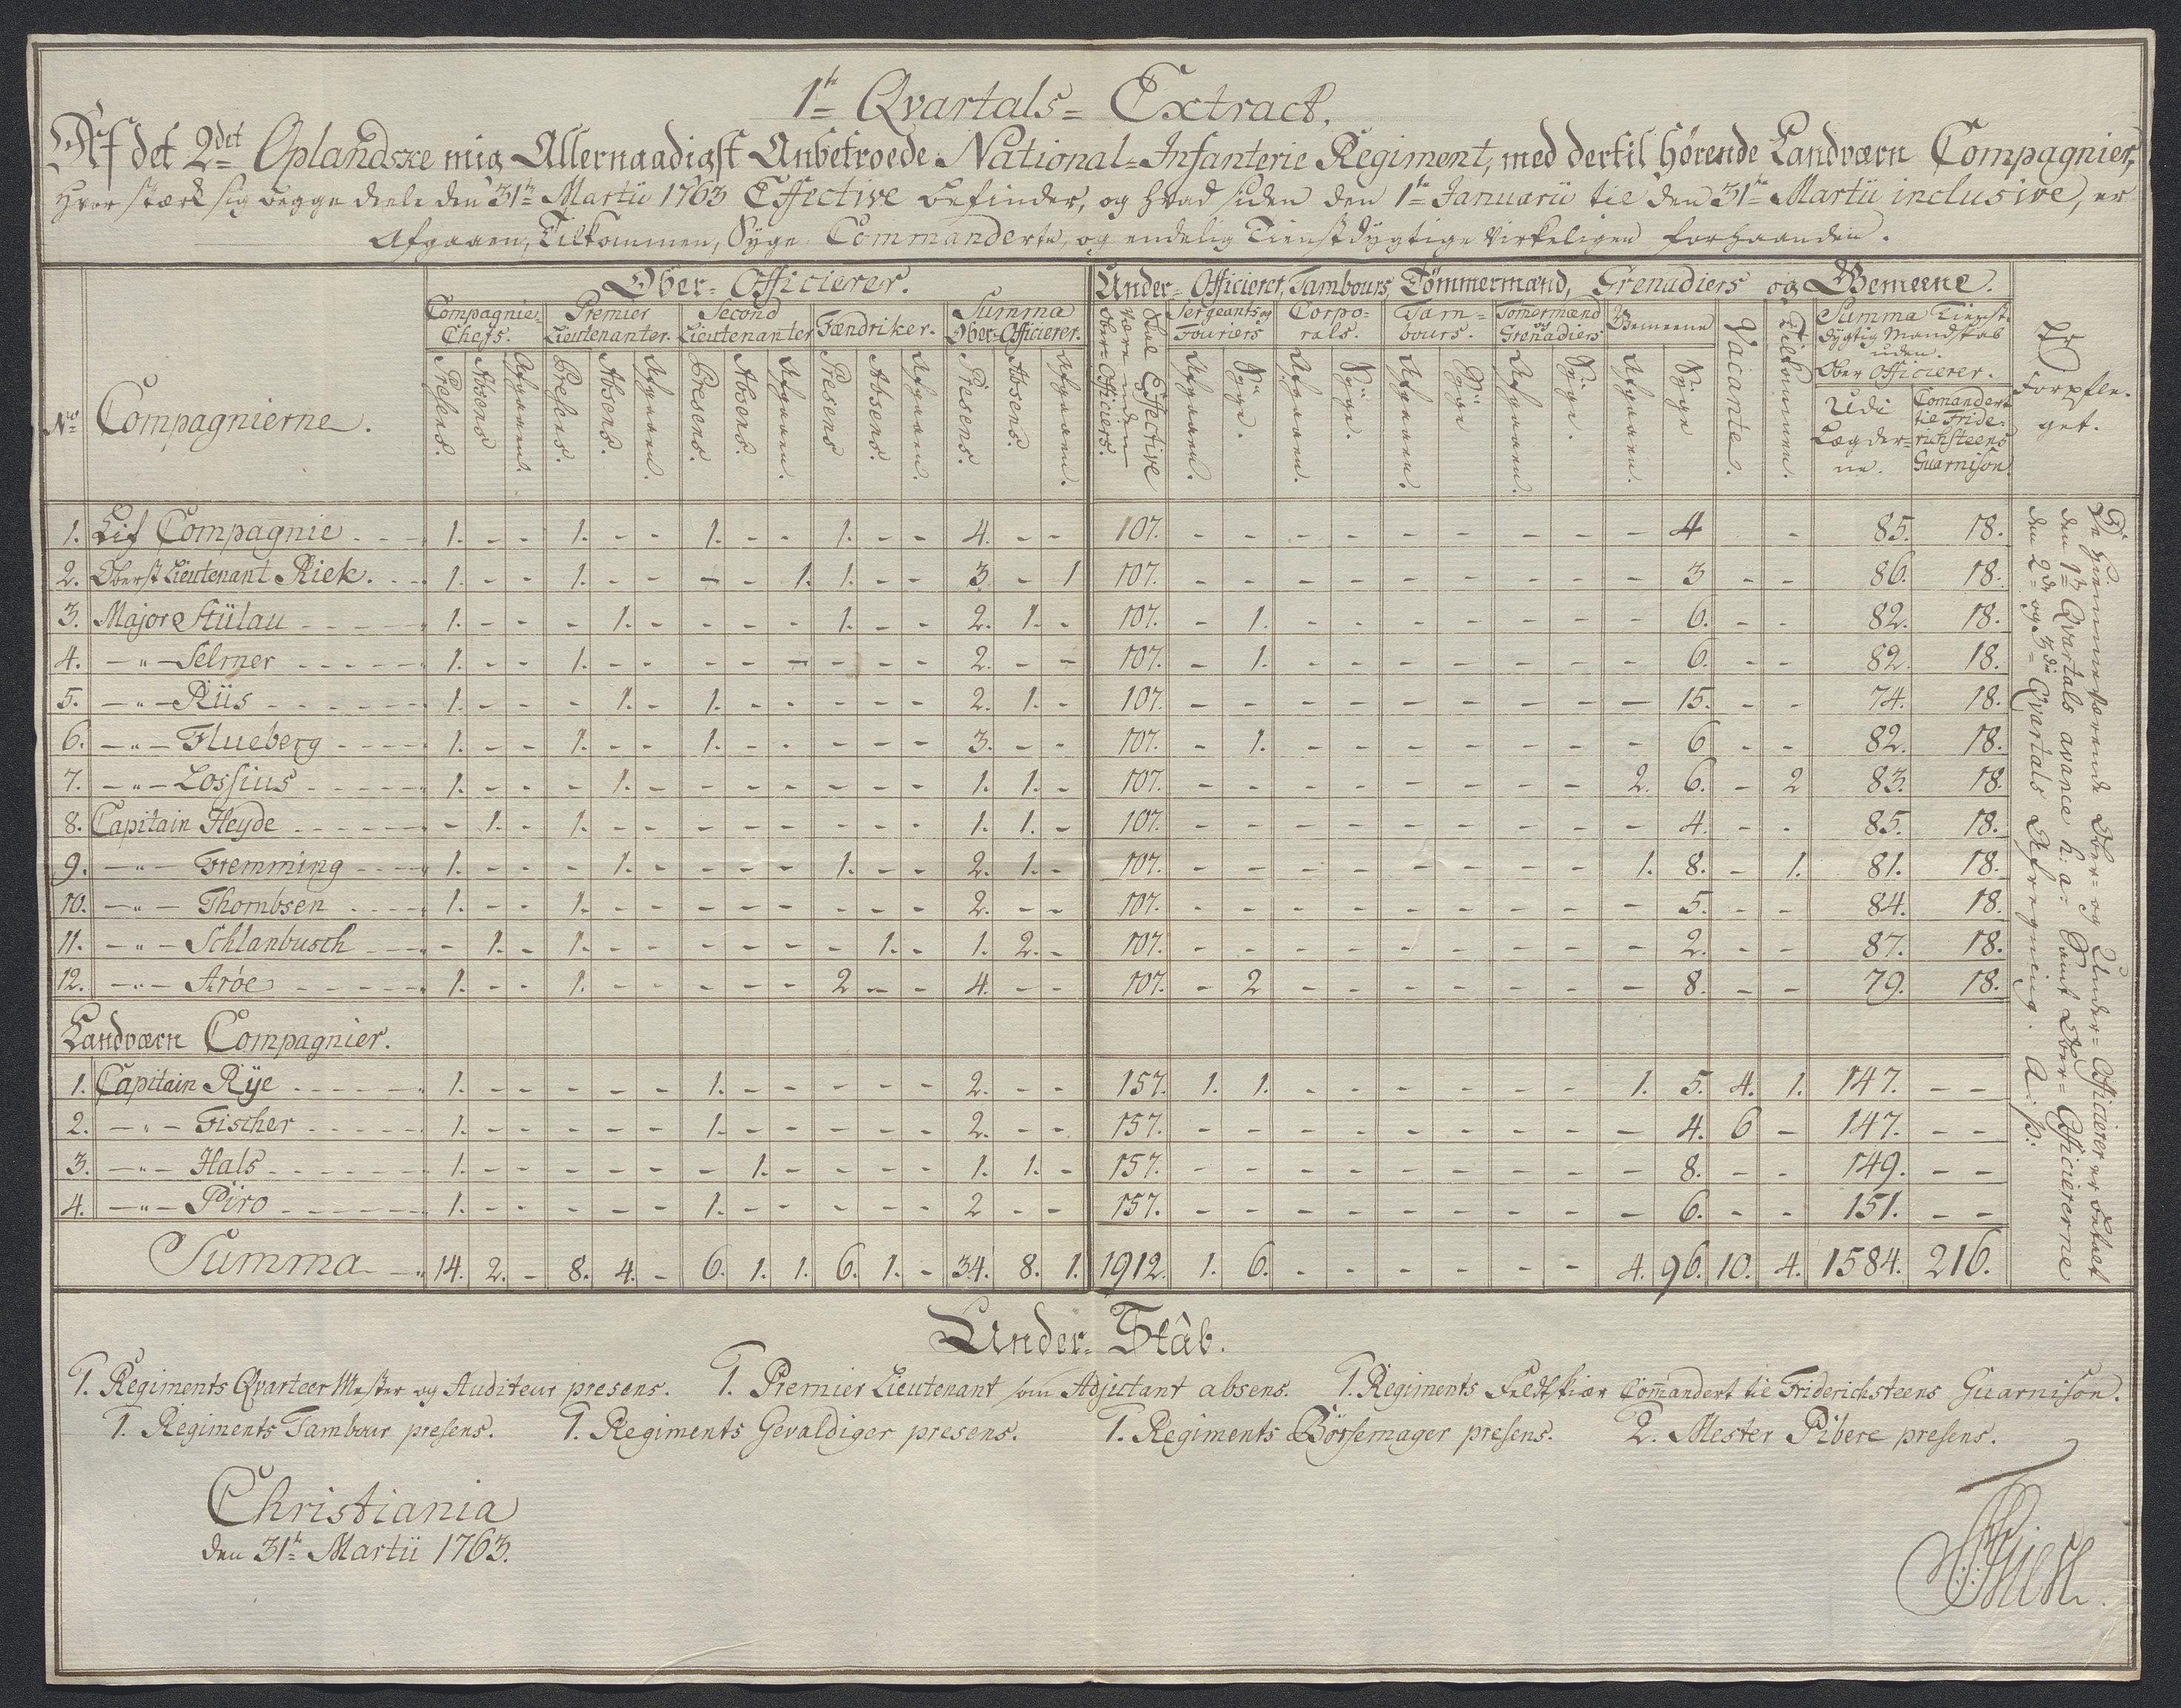 1te Qvartals= Extract.
Af det 2det Oplandske mig Allernaadigst Anbetroede National=Infanterie Regiment, med dertil hørende Landværn Compagnier,
Hvor stærk sig begge deele den 31te Martii 1763 Effective befinder, og hvad siden den 1te Januarii til den 31te Martii inclusive, er
Afgaaen, Tilkommen, Syge Commanderte, og endelig Tienstdygtige virkeligen forhaanden.
Ober=Officierer.
Under=Officierer, Tambours, Tømmermænd, Grenadiers og Gemeene.
No Compagnierne.
Compagnie=Chefs. Premier Lieutenanter. Second Lieutenanter Fændriker. Summa Ober=Officierer.
Presens. Absens Afgaaen. Presens. Absens. Afgaaen. Presens. Absens. Afgaaen. Presens Absens. Afgaaen. Presens. Absens. Afgaaen.
Skal Effective være uden Ober=Officiers.
Sergeants og Fouriers Corporals. Tambours. Tømmermænd og Grenadiers Gemeene
Afgaaen. Syge. Afgaaen. Syge. Afgaaen. Syge Afgaaen. Syge. Afgaaen. Syge
Vacante. Tilkommen.
Summa Tienst dygtig Mandskab uden Ober Officierer.
Udi Lægderne. Comandert til Friderichsteens Guarnison.
Er forpfleget.
1. Lif Compagnie 1. - - 1. - - 1. - - 1. - - 4. - - 107. - - - - - - - - - 4 - 85. 18.
2. Oberst Lieutenant Riek. 1. - - 1. - - - - 1. 1. - - 3. - 1 107. - - - - - - - - - 3 - - 86. 18.
3. Major Stülau 1. - - - 1. - - - - 1. - - 2. 1. - 107. - 1. - - - - - - - 6. - - 82. 18.
4. -"- Selmer 1. - - 1. - - - - - - - - 2. - - 107. - 1. - - - - - - - 6. - - 82. 18.
5. -"- Riis 1. - - - 1. - 1. - - - - - 2. 1. - 107. - - - - - - - - - 15. - - 74. 18.
6. -"- Flueberg 1. - - 1. - - 1. - - - - - 3. - - 107. - 1. - - - - - - - 6 - - 82. 18.
7. -"- Lossius 1. - - - 1. - - - - - - - 1. 1. - 107. - - - - - - - - 2. 6. - 2 83. 18.
8. Capitain Heyde - 1. - 1. - - - - - - - - 1. 1. - 107. - - - - - - - - - 4. - - 85. 18.
9. -"- Fremming 1. - - - 1. - - - - 1. - - 2. 1. - 107. - - - - - - - - 1. 8. - 1. 81. 18.
10. -"- Thombsen 1. - - 1. - - - - - - - - 2. - - 107. - - - - - - - - - 5. - - 84. 18.
11. -"- Schlanbusch - 1. - 1. - - - - - - 1. - 1. 2. - 107. - - - - - - - - - 2. - - 87. 18.
12. -"- Arøe 1. - - 1. - - - - - 2 - - 4. - - 107. - 2 - - - - - - - 8. - - 79. 18.
Landværn Compagnier.
1. Capitain Rÿe 1. - - - - - 1. - - - - - 2. - - 157. 1. 1. - - - - - - 1. 5. 4. 1. 147. - -
2. -"- Fischer 1. - - - - - 1. - - - - - 2. - - 157. - - - - - - - - - 4. 6 - 147. - -
3. -"- Hals 1. - - - - - - 1. - - - - 1. 1. - 157. - - - - - - - - - 8. - - 149. - -
4. -"- Piro 1. - - - - - 1. - - - - - 2 - - 157. - - - - - - - - - 6. - - 151. - -
Summa 14. 2. - 8. 4. - 6. 1. 1. 6. 1. - 34. 8. 1. 1912. 1. 6. - - - - - - 4. 96. 10. 4. 1584. 216.
De hiemmeværende Ober= og Under=Officierer er betalt
den 1te Qvartals avance h: a: Samt Ober=Officiererne
den 2de og 3die Qvartals Afregning. A: p:
Under=Stâb.
1. Regiments Qvarteer Mester og Auditeur presens. 1. Premier Lieutenant som Adjutant absens. 1. Regiments Feldtskiær Comandert til Friderichsteens Guarnison.
1. Regiments Tambour presens. 1. Regiments Gevaldiger presens. 1. Regiments Børsemager presens. 2. Mester Pibere presens.
Christiania
den 31te Martii 1763.